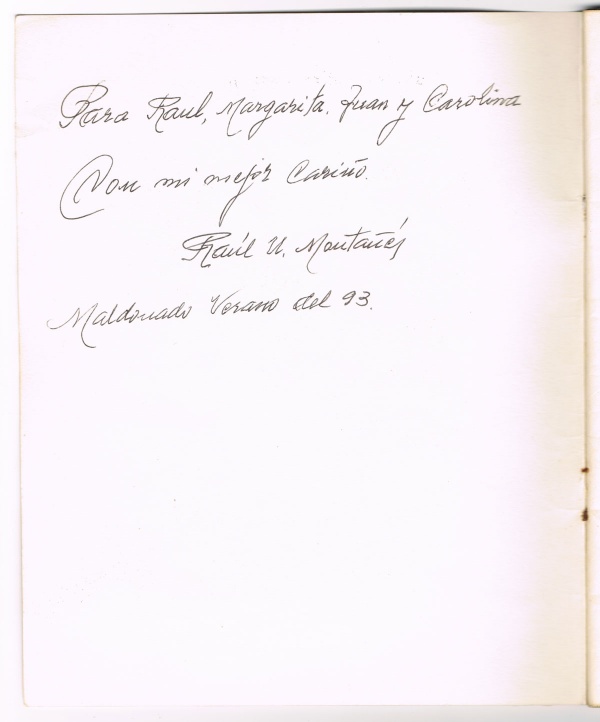 Para Raul, Margarita, Juan y Carolina
Con mi mejor Cariño.
Raúl U. Montañés
Maldonado Verano del 93.